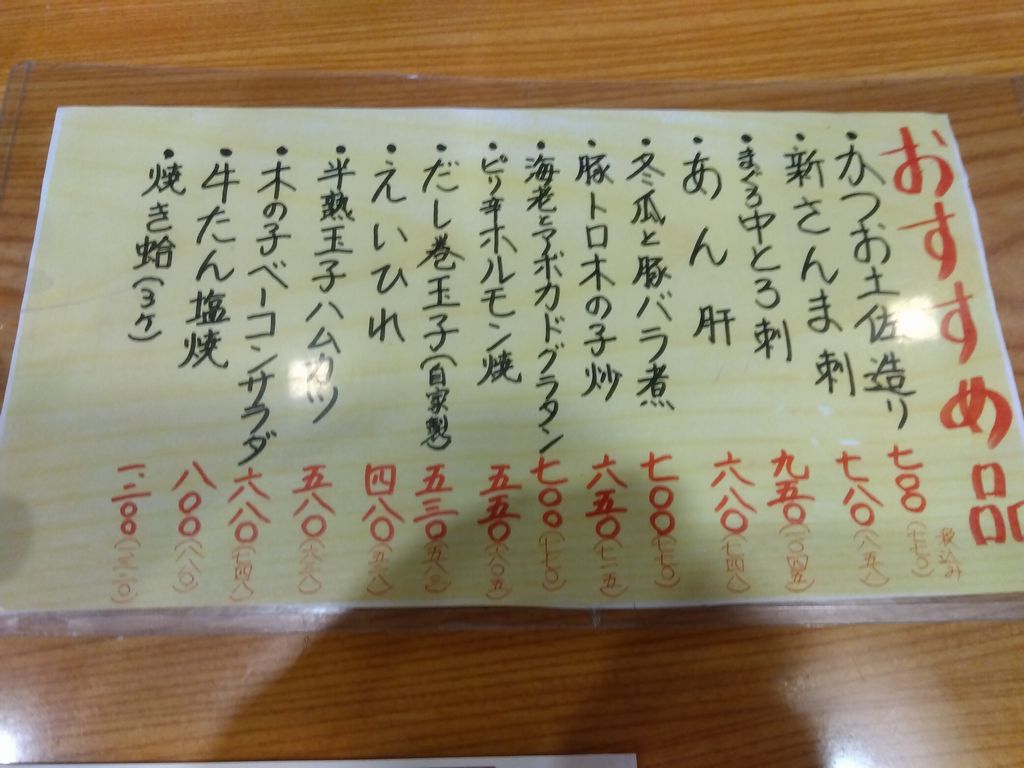 おすすめ品
税込み
・かつお土佐造り 七〇〇(七七〇)
・新さんま刺 七八〇(八五八)
・まぐろ中とろ刺 九五〇(一〇四五)
・あん肝 六八〇(七四八)
・冬瓜と豚バラ煮 七〇〇(七七〇)
・豚トロ木の子炒 六五〇(七一五)
・海老とアボカドグラタン 七〇〇(七七〇)
・ピリ辛ホルモン焼 五五〇(六〇五)
・だし巻玉子(自家製) 五三〇(五八三)
・えいひれ 四八〇(五二八)
・半熟玉子ハムカツ 五八〇(六三八)
・木の子ベーコンサラダ 六八〇(七四八)
・牛たん塩焼 八〇〇(八八〇)
・焼き蛤(3ケ) 一、二〇〇(一三二〇)